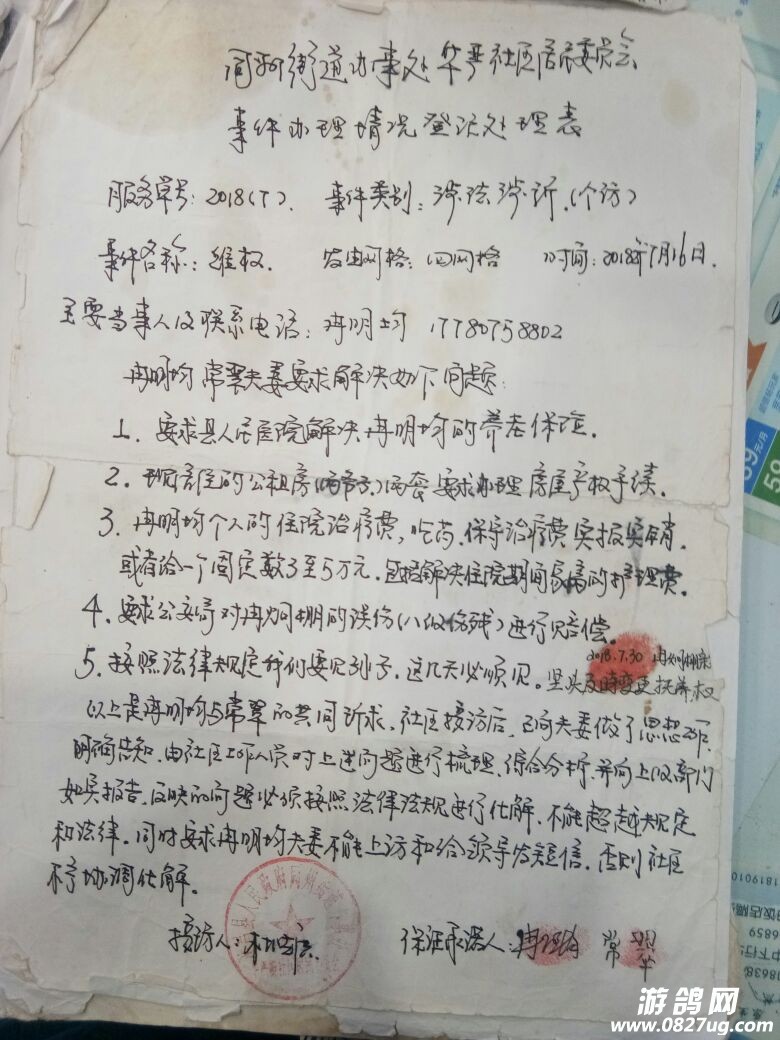 同州街道办事处华严社区居民委员会
事件办理情况登记处理表
服务单号：2018(7)． 事件类别：涉法涉诉．(个访)
事件名称：维权． 发生网格：四网格 时间：2018年7月16日．
主要当事人及联系电话：冉明均 17780758802
冉明均 常翠夫妻要求解决如下问题：
1．要求县人民医院解决冉明均的养老保险．
2．现居住的公租房 两套要求办理房屋产权手续．
3．冉明均个人的住院治疗费，吃药．保守治疗费实报实销．
或者给一个固定数3至5万元．包括解决住院期间家属的护理费．
4．要求公安局对冉炯棚的误伤(八级伤残)进行赔偿．
2018.7.30
5．按照法律规定我们要见孙子．这几天必须见． 及時变更抚养权
以上是冉明均与常翠的共同诉求．社区接访后，已向夫妻做了思想工作．
明确告知．由社区工作人员对上述问题进行梳理，综合分析，并向上级部门
如实报告．反映的问题必须按照法律法规进行化解．不能超越规定
和法律．同时要求冉明均夫妻不能上访和给领导发短信．否则社区
不予协调化解．
接访人： 保证承诺人：冉明均 常翠
游鸽网
www.0827ug.com